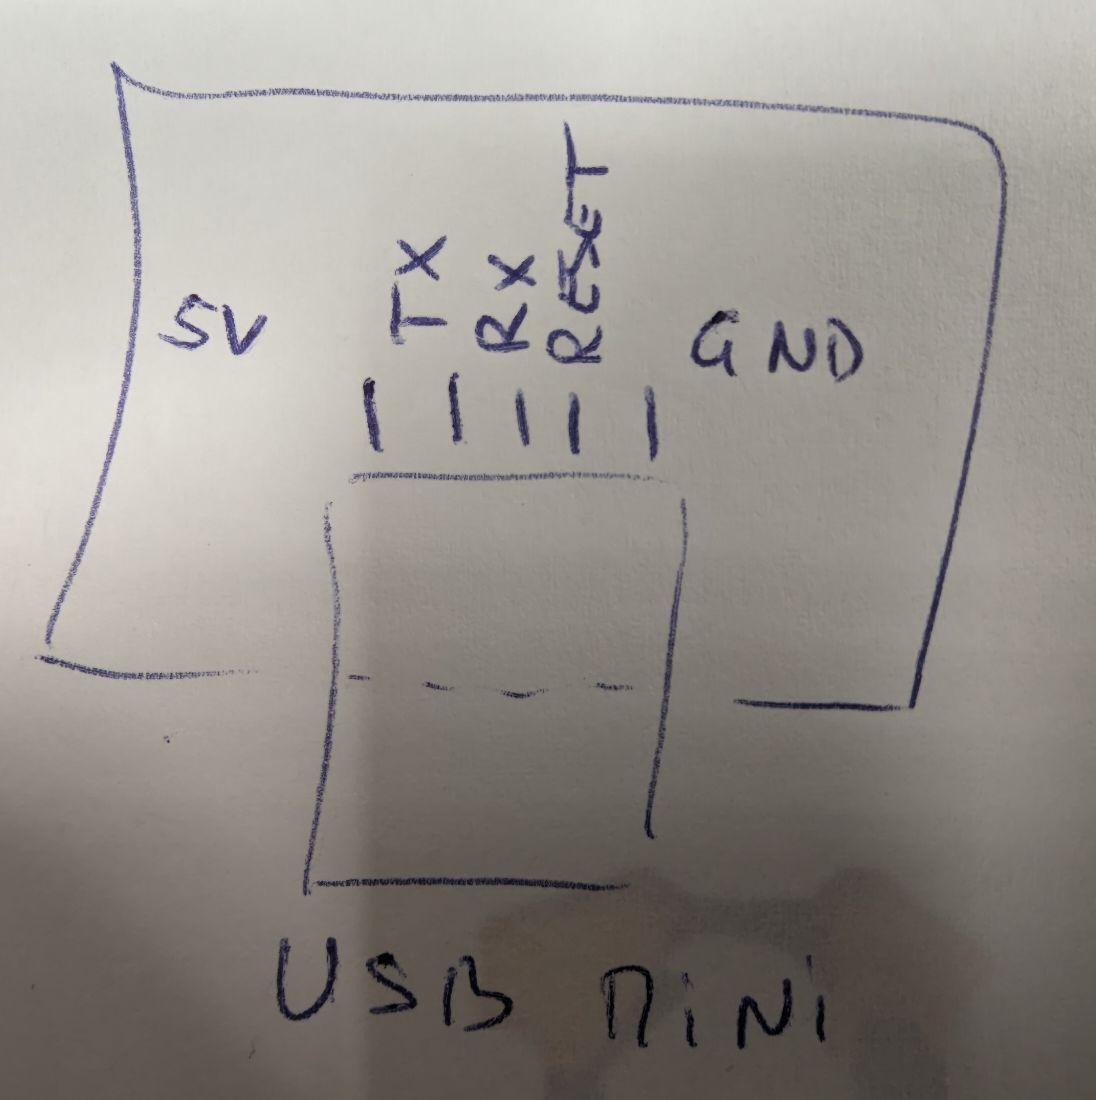 5V
TX
RX
RESET
GND
USB MiNi